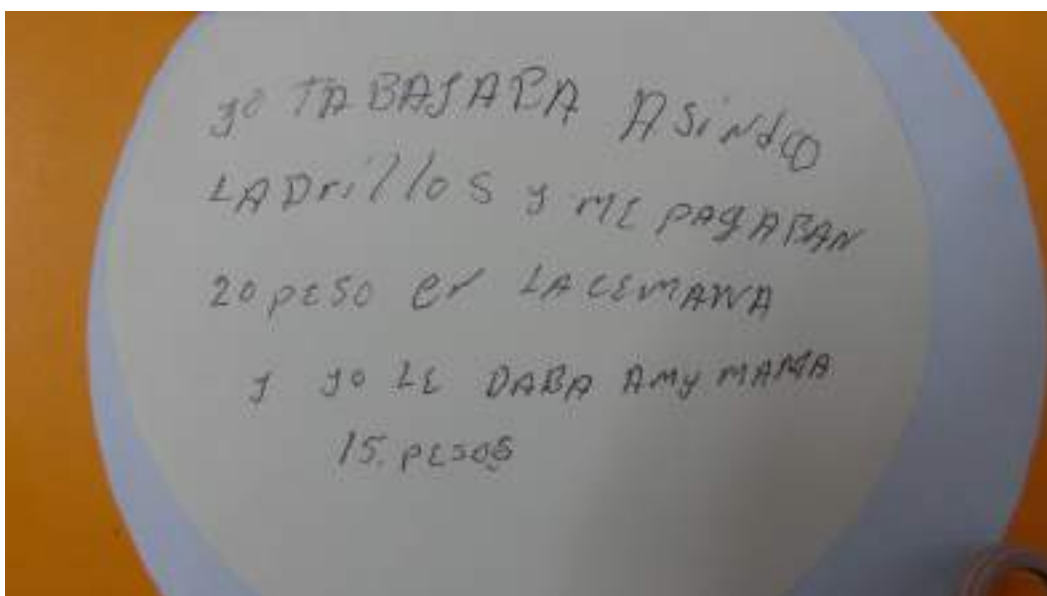 yo TABAJABA ASiNdO
LADrillOS y ME PAgABAN
20 PESO en LA CEMANA
y yo LE DABA AMy MAMA
15. PESOS